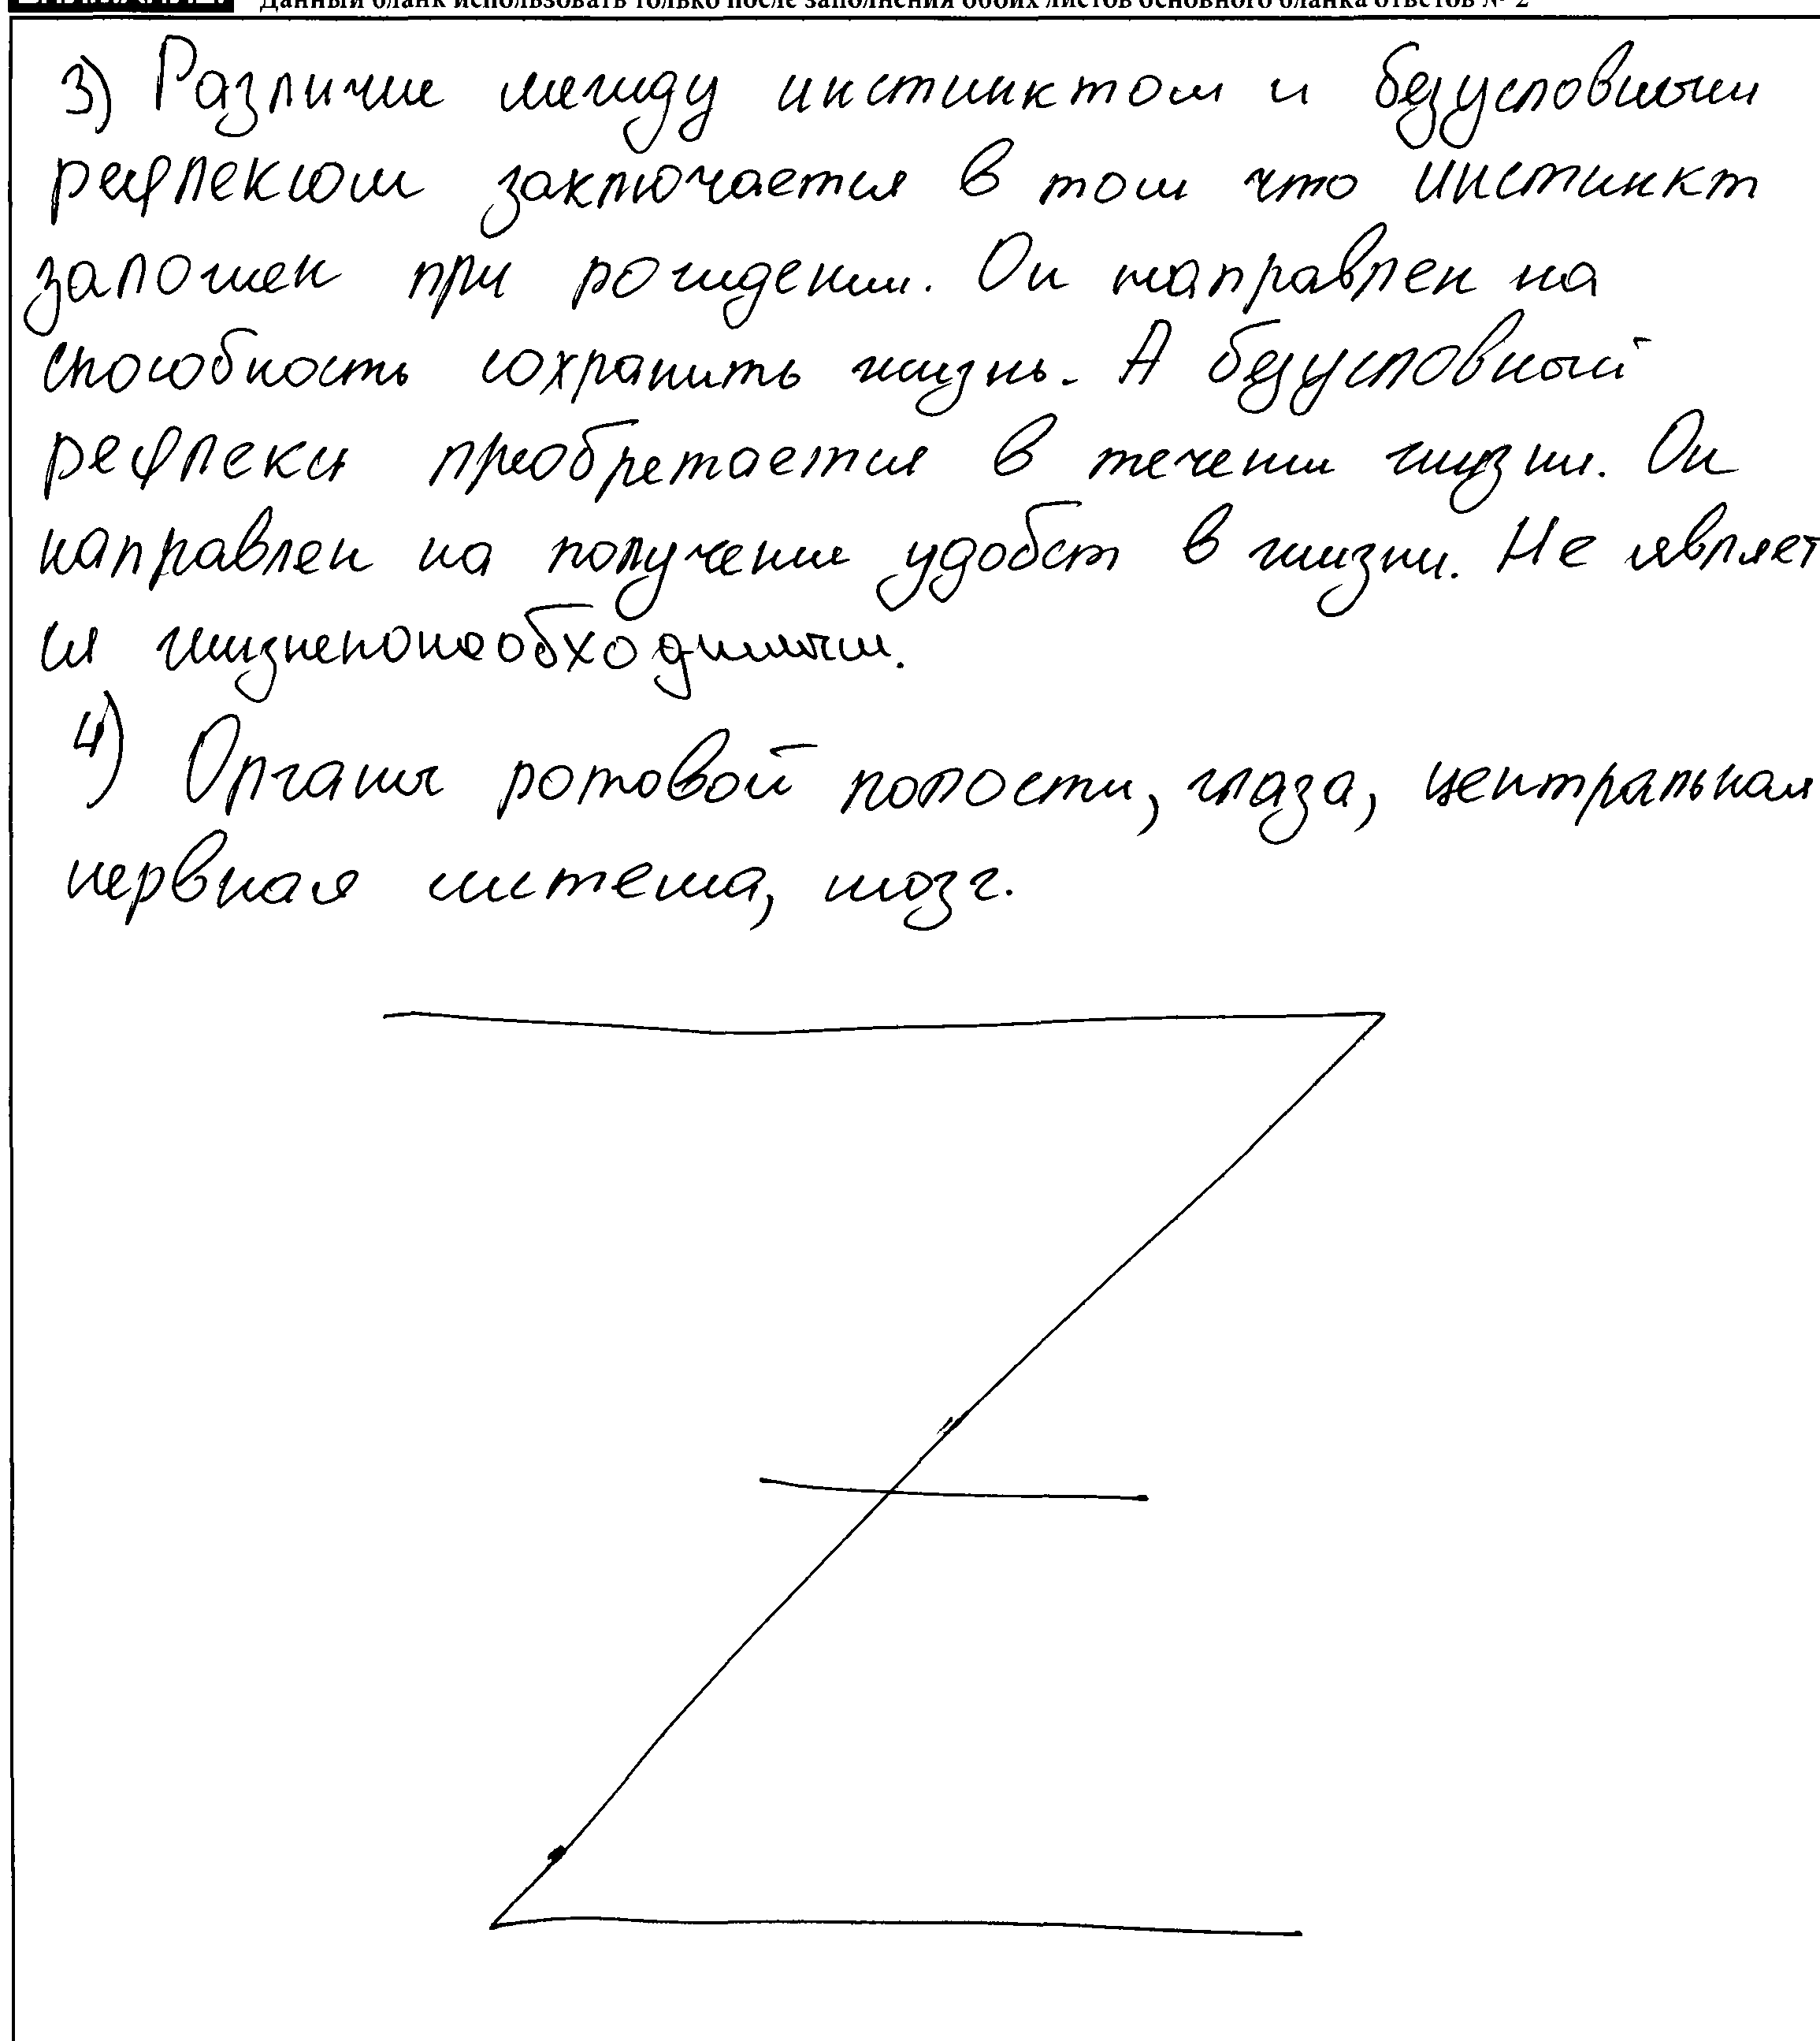 Данный бланк использовать только после заполнения обоих листов основного бланка ответов № 2
3) Различие между инстинктом и безусловным
рефлексом заключается в том что инстинкт
заложен при рождении. Он направлен на
способность сохранить жизнь. А безусловный
рефлекс приобретается в течении жизни. Он
направлен на получение удобст в жизни. Не являет
ся жизненонеобходимым.
4) Органы ротовой полости, глаза, центральная
нервная система, мозг.